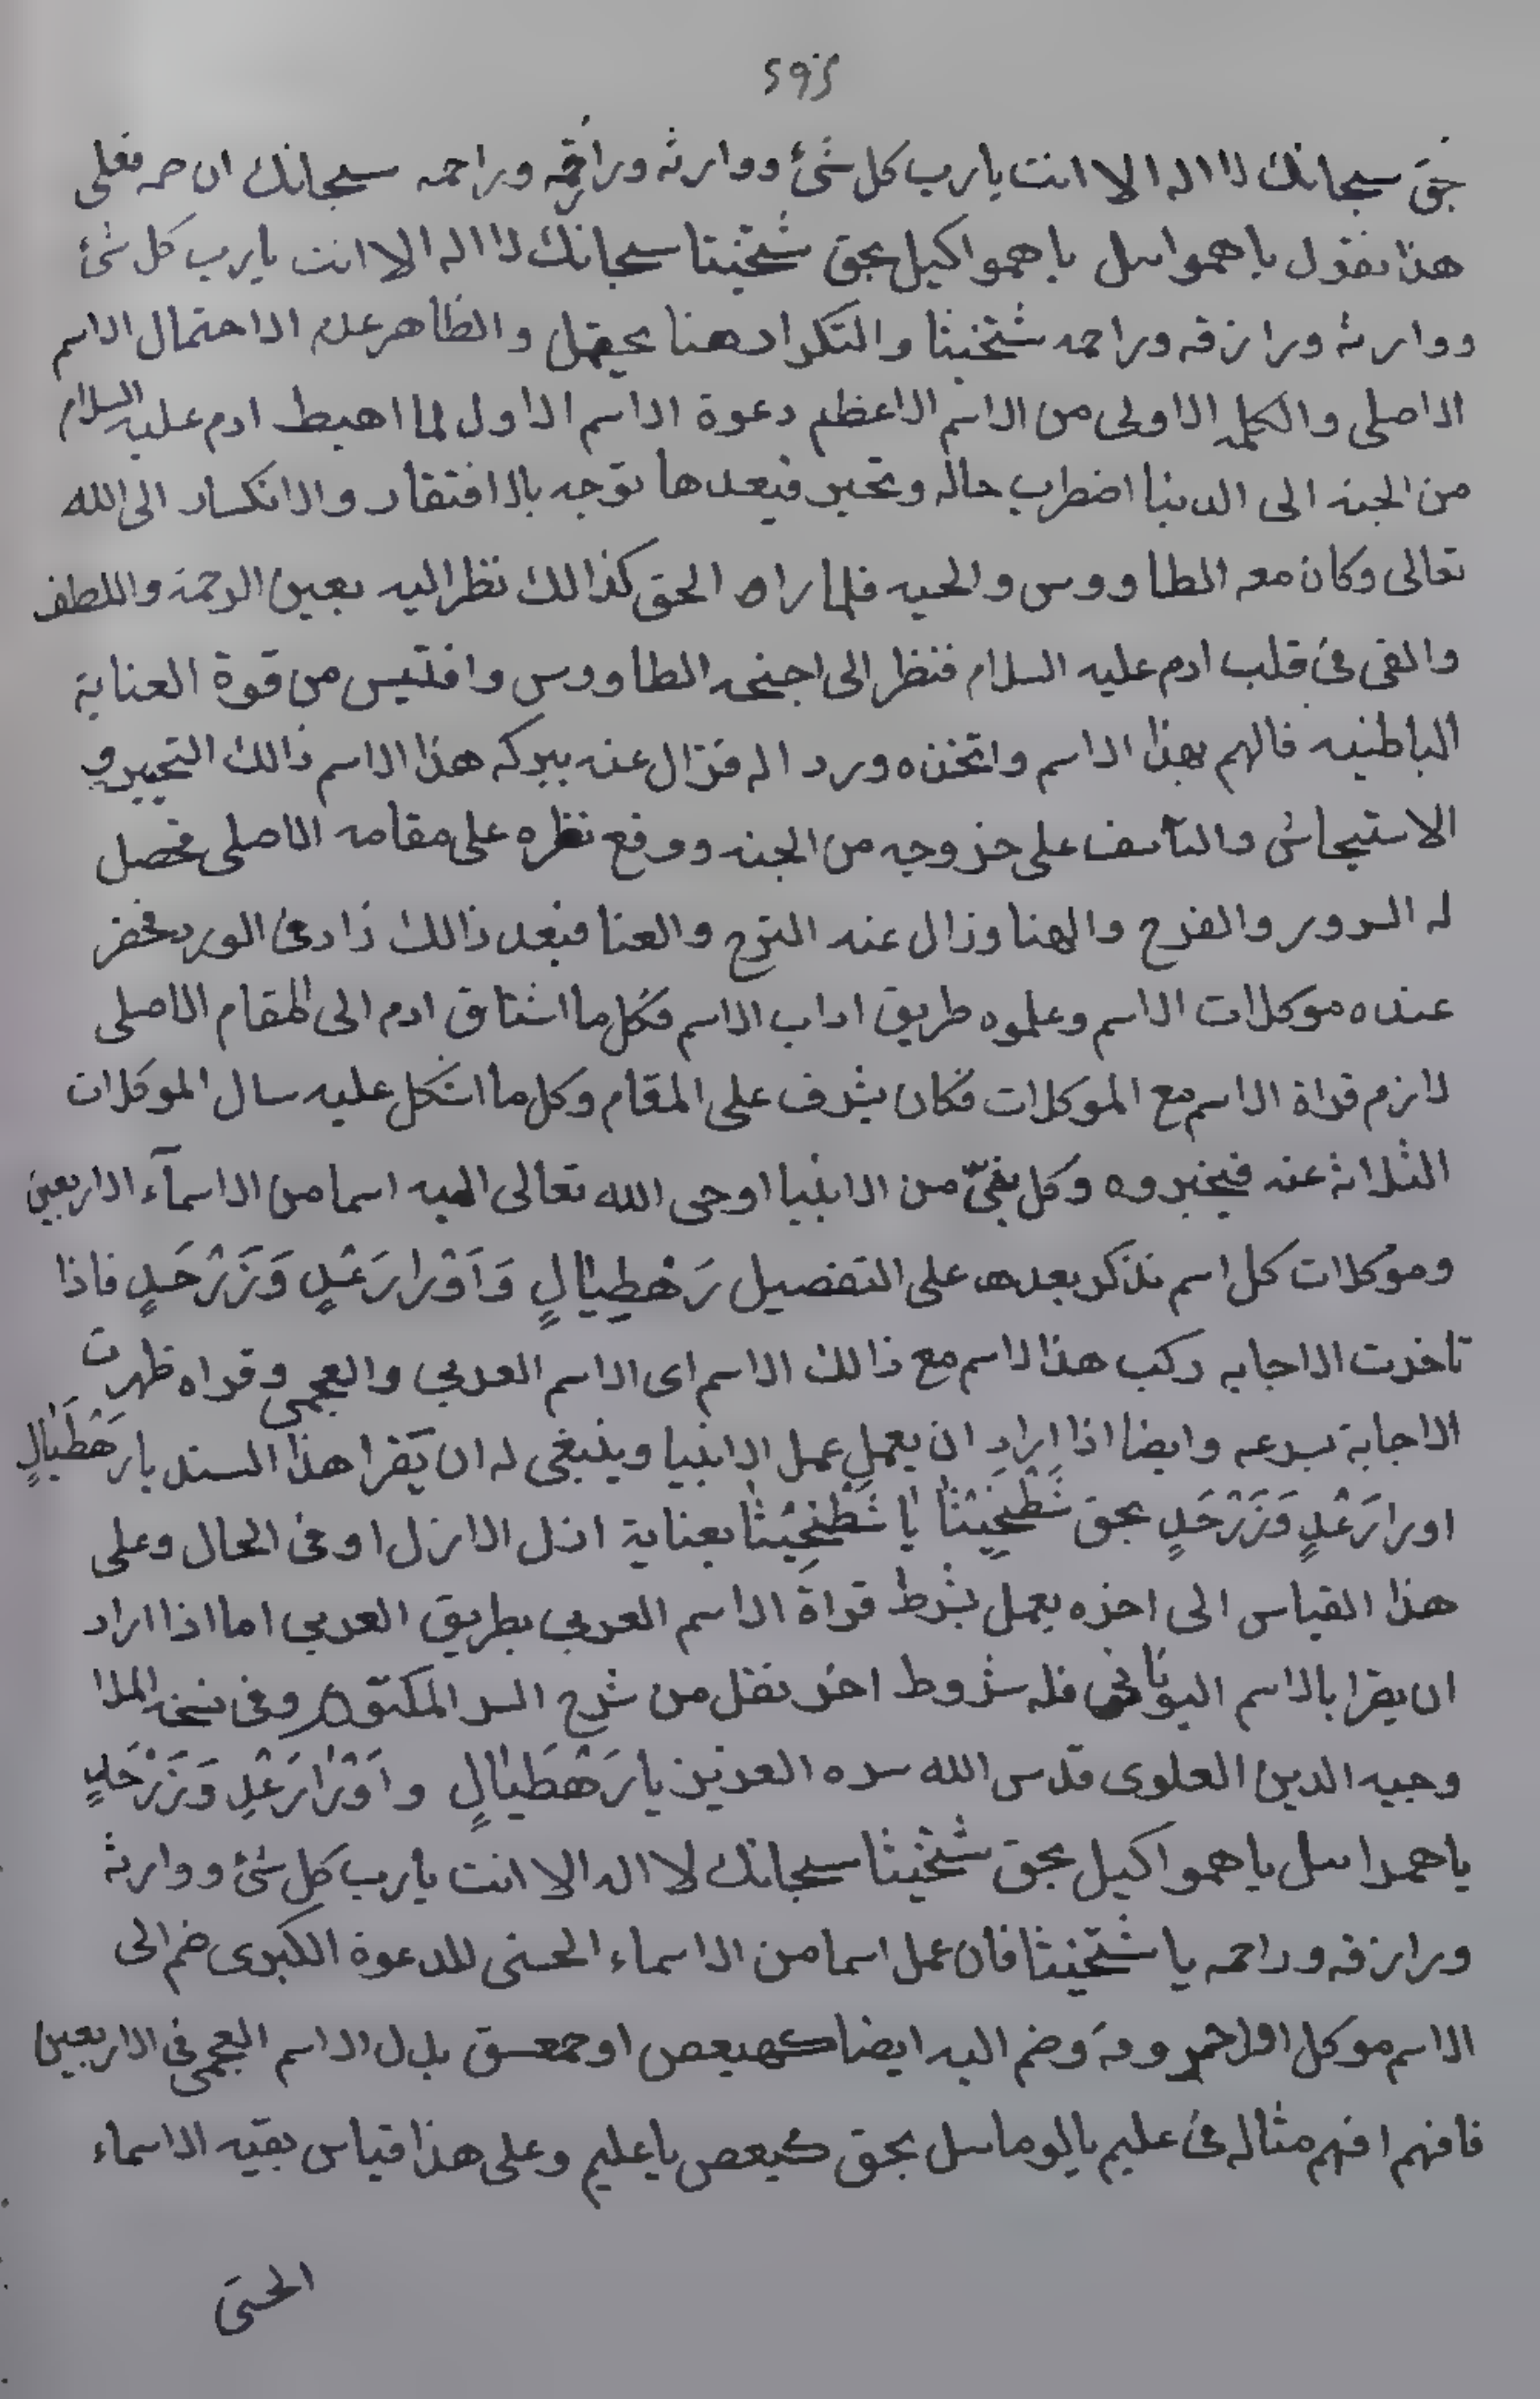 بحق سبحانك لا اله الا انت يارب كل شئ ووارثه ورازقه وراحمه سبحانك ان صه فعلى
هذا نقول يا همواىىل يا همواكيل بحق شتخيثا سبحانك لا اله الا انت يا رب كل شئ
ووارثه ورازقه وراحمه شتخيثا والتكرار هنا يحتمل والظاهر عدم الاحتمال الاسم
الاصلى والكلمه الاولى من الاسم الاعظم دعوة الاسم الاول لما اهبط ادم عليه السلام
من الجنه الى الدنيا اضطرب حاله وتحير فبعدها توجه بالافتقار والانكسار الى الله
تعالى وكان معه الطاووس والحيه فلما راه الحق كذالك نظر اليه بعين الرحمة واللطف
والقى فى قلب ادم عليه السلام فنظر الى اجنحه الطاووس واقتبس من قوة العناية
الباطنيه فالهم بهذا الاسم واتخذه ورد اله فزال عنه ببركه هذا الاسم ذالك التحيير و
الاستيحاش والتأسف على خزوجه من الجنه ووقع نظره على مقامه الاصلى فحصل
له السرور والفرح والهنا وزال عنه الترح والعنا فبعد ذالك زاد فى الورد فحضر
عنده موكلات الاسم وعلموه طريق اداب الاسم فكل ما اشتاق ادم الى المقام الاصلى
لازم قراة الاسم مع الموكلات فكان يشرف على المقام وكل ما اشكل عليه سال الموكلات
الثلاثة عنه فيخبروه وكل نبىّ من الانبيا اوحى الله تعالى اليه اسما من الاسمآء الاربعين
وموكلات كل اسم نذكر بعدها على التفصيل رَهْطِيَالٍ وَاَوْرَارَعْدٍ وَزَرْحَدٍ فاذا
تاخرت الاجابه ركب هذا الاسم مع ذالك الاسم اى الاسم العربي والعجمى وقراه ظهرت
الاجابة بسرعه وايضا اذا اراد ان يعمل عمل الانبيا وينبغى له ان يقرا هذا السند يا رَهْطَيَالٍ
اورارَعْدٍ وَزَرْحَدٍ بحق شَطْخِيْثَا يَا شَطْخِيْثَا بعناية ازل الازل اوفى الحال وعلى
هذا القياس الى اخره يعمل بشرط قراة الاسم العربي بطريق العربي اما اذا اراد
ان يقرا بالاسم اليونانى فله شروط اخر نقل من شرح السر المكتوم وفى نسخه الملا
وجيه الدين العلوى قدس الله سره العزيز يا رَهْطَيَالٍ واَوْرَارَعْدٍ وَزَرْحَدٍ
ياهمراىىل ياهمواكيل بحق شتخيثا سبحانك لا اله الا انت يارب كل شئ ووارثه
ورازقه وراحمه يا شتخيثا فان عمل اسما من الاسماء الحسنى للدعوة الكبرى ضم الى
الاسم موكل اول وضم اليه ايضا كهيعص او حمعسق بدل الاسم العجمى فى الاربعين
فافهم افهم مثاله فى عليم يالوماىىل بحق كهيعص ياعليم وعلى هذا قياس بقيه الاسماء
الحسنى